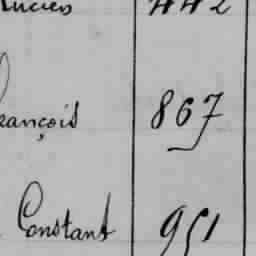 Lucien 442
François 867
Constant 951